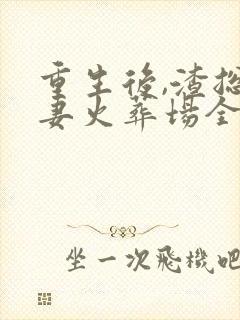 重生後,渣
妻火葬場全
坐一次飛機吧